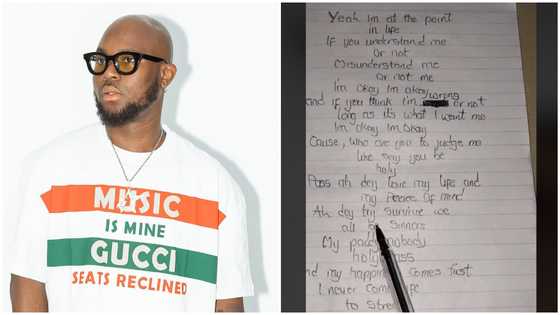 MUSIC
IS MINE
GUCCI
SEATS RECLINED
Yeah Im at the point
in life
If you understand me
Or not
Misunderstand me
Or not me
I'm Okay Im okay
and if you think I'm wrong or not
long as its what I want me
Im Okay Im Okay
Cause, who are you to judge me
like say you be
holy
Pass ah dey love my life and
my Peace Of mind
Ah dey try survive we
all be Sinners
My paddy nobody
holy pass
and my happiness comes first
I never come life
to